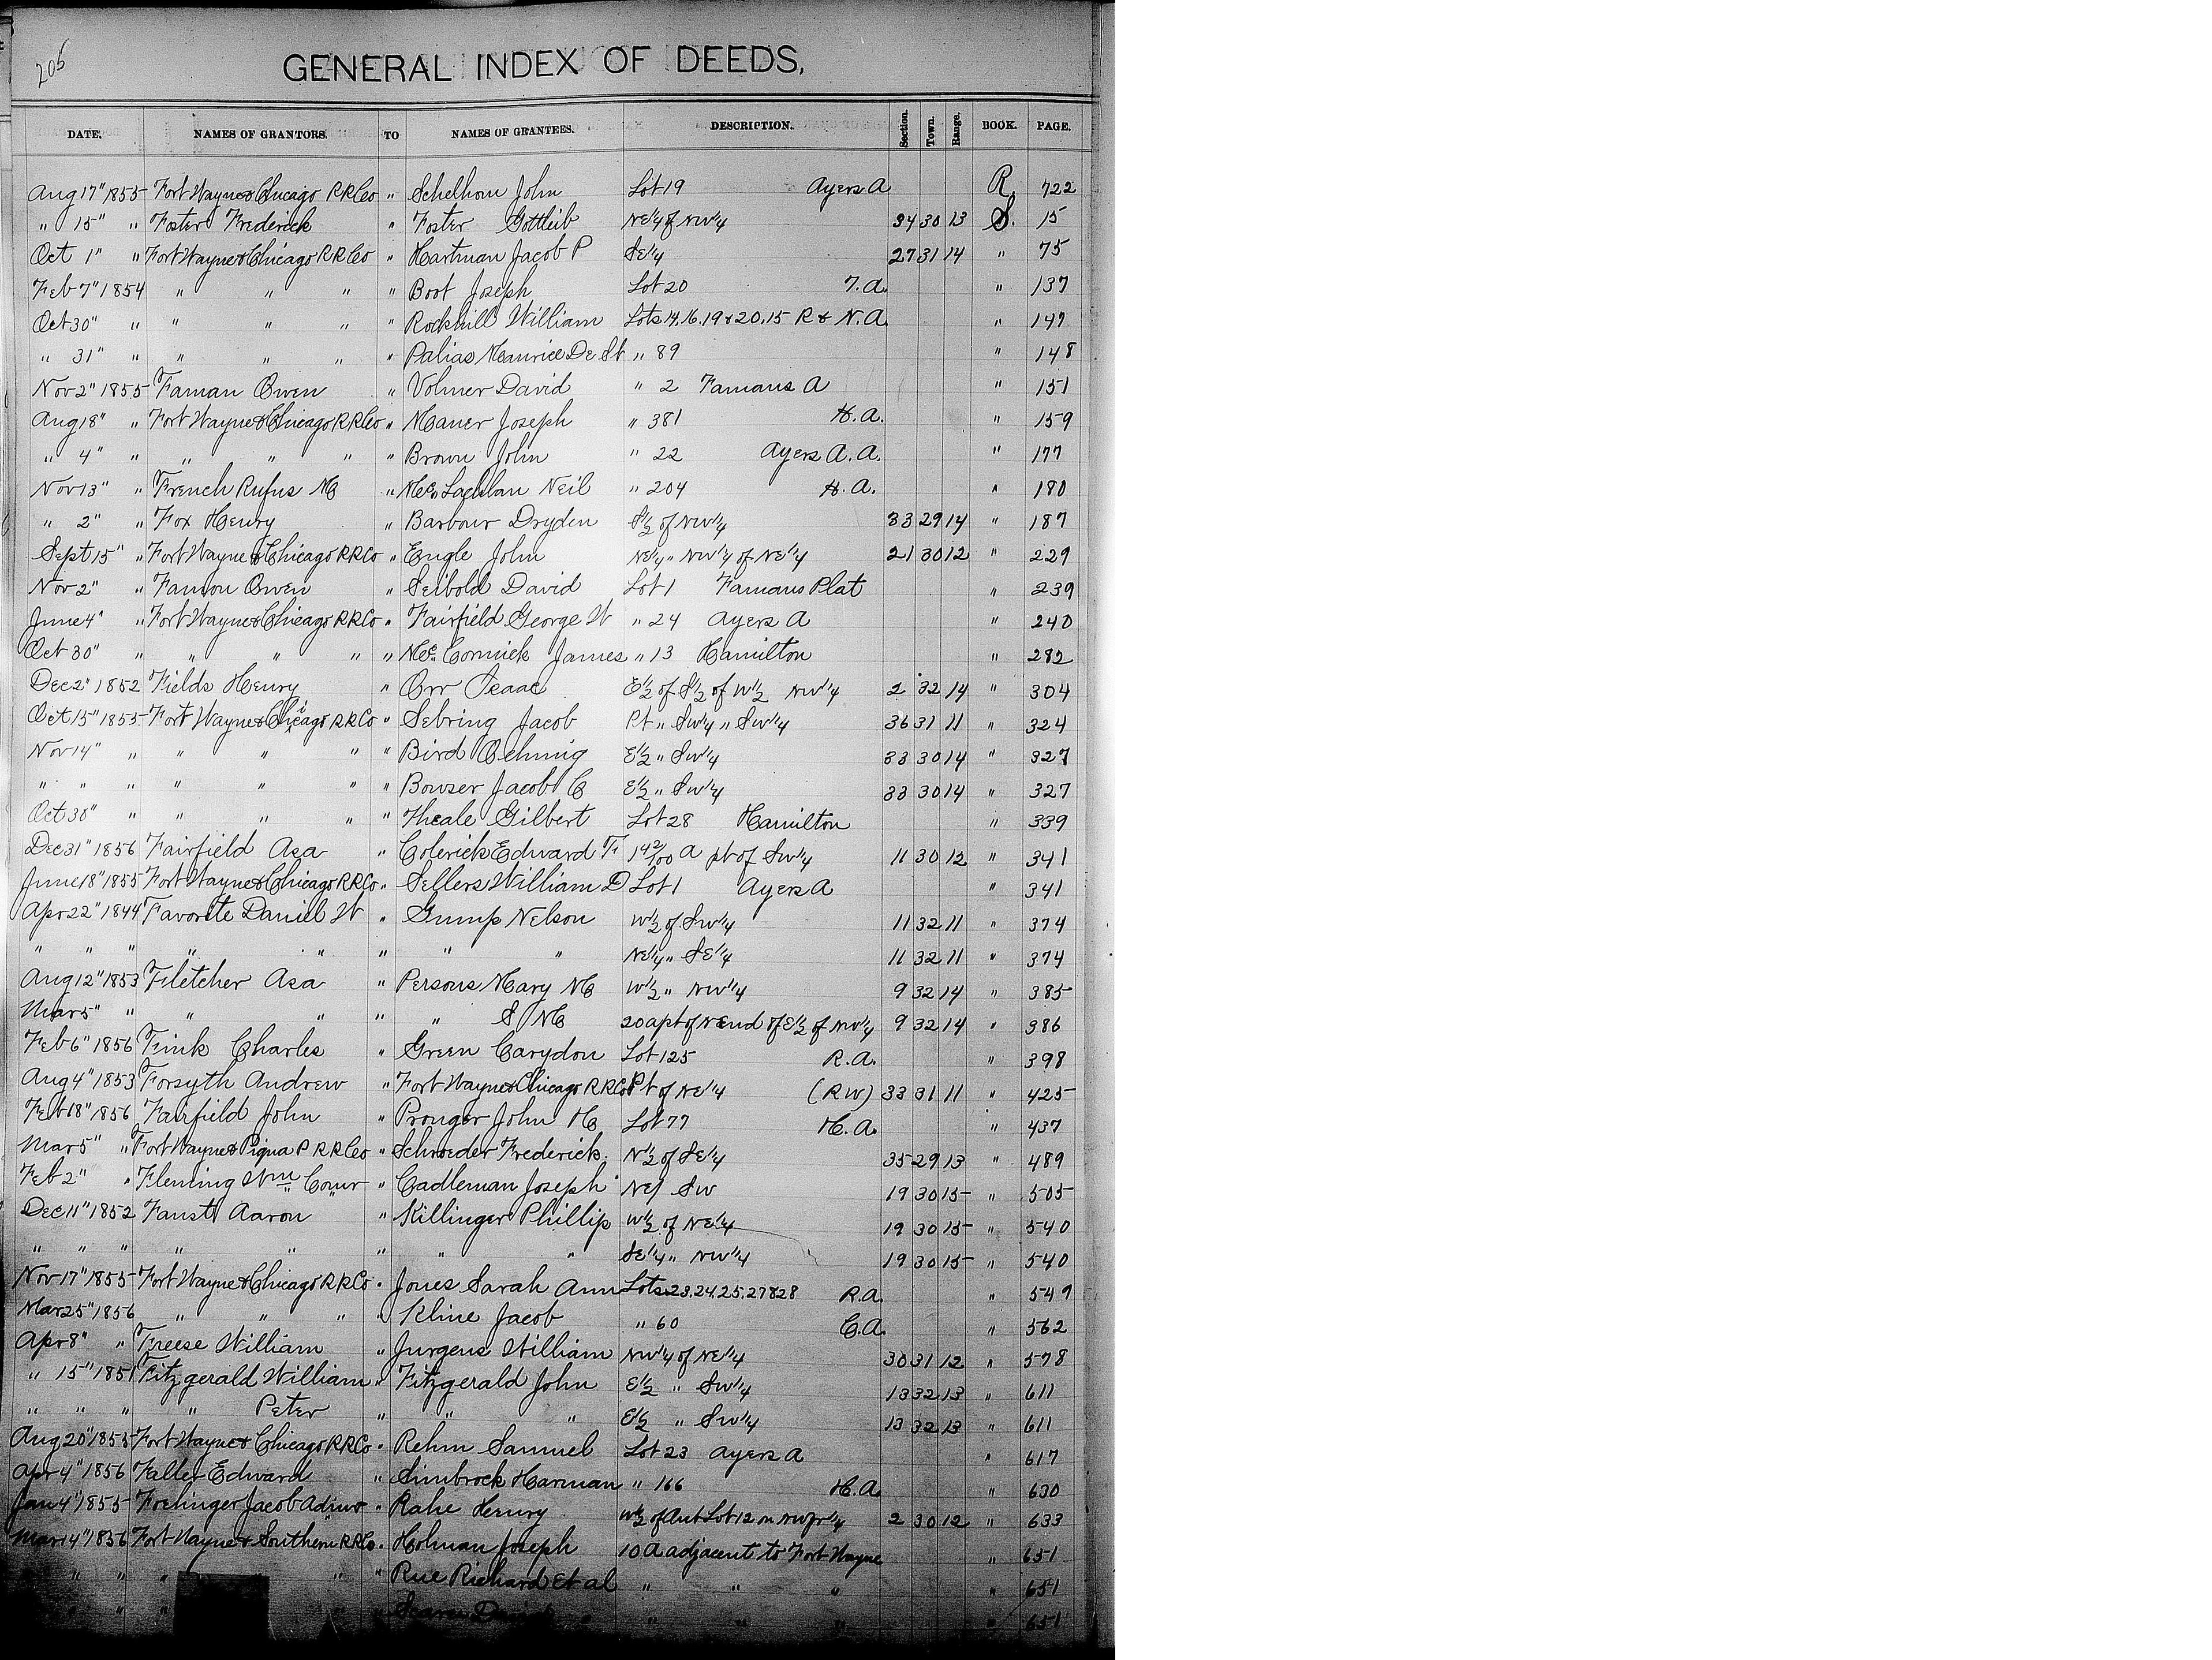 206
GENERAL INDEX OF DEEDS.
DATE. NAMES OF GRANTORS. TO NAMES OF GRANTEES. DESCRIPTION. Section. Town. Range. BOOK. PAGE.
Aug 17" 1855 Fort Wayne & Chicago R R Co " Schelhom John Lot 19 Ayers A R. 722
" 15" " Foster Frederick " Foster Gottleib NE 1/4 of NW 1/4 34 30 13 S. 15
Oct 1" " Fort Wayne & Chicago R R Co " Hartman Jacob P SE 1/4 27 31 14 " 75
Feb 7" 1854 " " " " Boot Joseph Lot 20 T. A. " 137
Oct 30" " " " " " Rockhill William Lots 14. 16. 19 & 20. 15 R & N. A. " 147
" 31" " " " " " Palias Maurice De St " 89 " 148
Nov 2" 1855 Faman Owen " Volmer David " 2 Famans A " 151
Aug 18" " Fort Wayne & Chicago R R Co " Maner Joseph " 381 H. A. " 159
" 4" " " " " " Brown John " 22 Ayers A. A. " 177
Nov 13" " French Rufus M " Mc Lachlan Neil " 204 H. A. " 180
" 2" " Fox Henry " Barbour Dryden S 1/2 of NW 1/4 33 29 14 " 187
Sept 15" " Fort Wayne & Chicago R R Co " Engle John NE 1/4 " NW 1/4 of NE 1/4 21 30 12 " 229
Nov 2" " Famon Owen " Seibold David Lot 1 Famans Plat " 239
June 4" " Fort Wayne & Chicago R R Co " Fairfield George W " 24 Ayers A " 240
Oct 30" " " " " " Mc Cormick James " 13 Hamilton " 282
Dec 2" 1852 Fields Henry " Orr Isaac E 1/2 of S 1/2 of W 1/2 NW 1/4 2 32 14 " 304
Oct 15" 1855 Fort Wayne & Chicago R R Co " Sebring Jacob Pt " SW 1/4 " SW 1/4 36 31 11 " 324
Nov 14" " " " " " Bird Ochmig E 1/2 " SW 1/4 33 30 14 " 327
" " " " " " " Bowser Jacob C E 1/2 " SW 1/4 33 30 14 " 327
Oct 30" " " " " " Theale Gilbert Lot 28 Hamilton " 339
Dec 31" 1856 Fairfield Asa " Colerick Edward F 1 42/100 A pt of SW 1/4 11 30 12 " 341
June 18" 1855 Fort Wayne & Chicago R R Co " Sellers William D Lot 1 Ayers A " 341
Apr 22" 1844 Favorite Daniel W " Gump Nelson W 1/2 of SW 1/4 11 32 11 " 374
" " " " " " " " NE 1/4 " SE 1/4 11 32 11 " 374
Aug 12" 1853 Fletcher Asa " Persons Mary M W 1/2 " NW 1/4 9 32 14 " 385
Mar 5" " " " " " S M 20 a pt of N End of E 1/2 of NW 1/4 9 32 14 " 386
Feb 6" 1856 Fink Charles " Green Carydon Lot 125 R. A. " 398
Aug 4" 1853 Forsyth Andrew " Fort Wayne & Chicago R R Co Pt of NE 1/4 (R W) 33 31 11 " 425
Feb 18" 1856 Fairfield John " Pronger John H Lot 77 H. A. " 437
Mar 5" " Fort Wayne & Piqua P R R Co " Schroeder Frederick. N 1/2 of SE 1/4 35 29 13 " 489
Feb 2" " Fleming Wm Comr " Cadleman Joseph NE/ SW 19 30 15 " 505
Dec 11" 1852 Faust Aaron " Killinger Phillip W 1/2 of NE 1/4 19 30 15 " 540
" " " " " " " " SE 1/4 " NW 1/4 19 30 15 " 540
Nov 17" 1855 Fort Wayne & Chicago R R Co " Jones Sarah Ann Lots 23. 24. 25. 27 & 28 R. A. " 549
Mar 25" 1856 " " " " Kline Jacob " 60 C. A. " 562
Apr 8" " Freese William " Jurgens William NW 1/4 of NE 1/4 30 31 12 " 578
" 15" 1851 Fitzgerald William " Fitzgerald John E 1/2 " SW 1/4 13 32 13 " 611
" " " " Peter " " " E 1/2 " SW 1/4 13 32 13 " 611
Aug 20" 1855 Fort Wayne & Chicago R R Co " Rehm Samuel Lot 23 Ayers A " 617
Apr 4" 1856 Faller Edward " Simbrock Harman " 166 H. A. " 630
Jan 4" 1855 Frelinger Jacob Admr " Rahe Henry W 1/2 of Out Lot 12 in NW fr 1/4 2 30 12 " 633
Mar 14" 1856 Fort Wayne & Southern R R Co " Holman Joseph 10 A adjacent to Fort Wayne " 651
" " " " " Rue Richard Et al " " " " 651
" " " " " " " " " 651